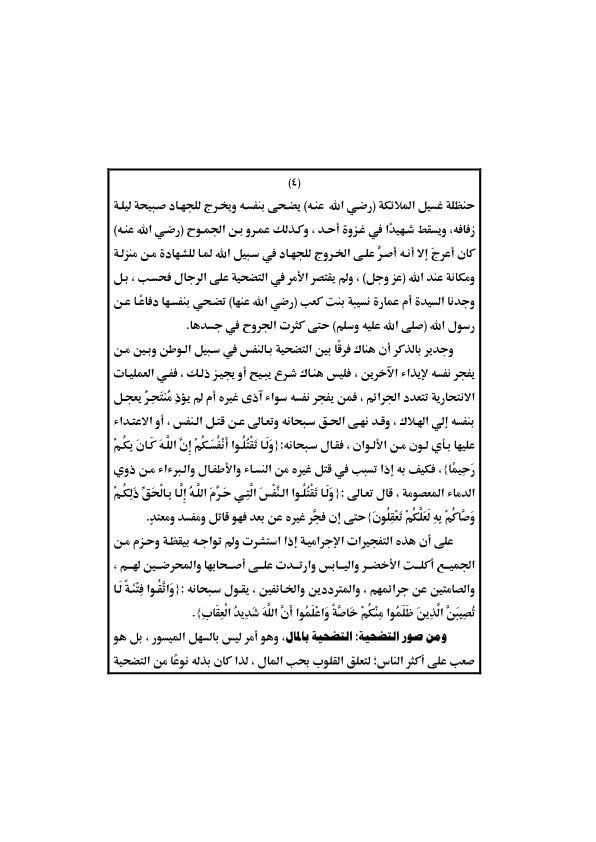 (٤)
حنظلة غسيل الملائكة (رضي الله عنه) يضحى بنفسه ويخرج للجهاد صبيحة ليلة
زفافه، ويسقط شهيدًا في غزوة أحد ، وكذلك عمرو بن الجموح (رضي الله عنه)
كان أعرجَ إلا أنه أصرَّ على الخروج للجهاد في سبيل الله لما للشهادة من منزلة
ومكانة عند الله (عز وجل) ، ولم يقتصر الأمر في التضحية على الرجال فحسب ، بل
وجدنا السيدة أم عمارة نسيبة بنت كعب (رضي الله عنها) تضحي بنفسها دفاعًا عن
رسول الله (صلى الله عليه وسلم) حتى كثرت الجروح في جسدها.
وجدير بالذكر أن هناك فرقًا بين التضحية بالنفس في سبيل الوطن وبين من
يفجر نفسه لإيذاء الآخرين ، فليس هناك شرع يبيح أو يجيز ذلك ، ففي العمليات
الانتحارية تتعدد الجرائم ، فمن يفجر نفسه سواء آذى غيره أم لم يؤذِ مُنتَحِرٌ يعجل
بنفسه إلي الهلاك ، وقد نهى الحق سبحانه وتعالى عن قتل النفس ، أو الاعتداء
عليها بأي لون من الألوان ، فقال سبحانه: {وَلَا تَقْتُلُوا أَنْفُسَكُمْ إِنَّ اللَّهَ كَانَ بِكُمْ
رَحِيمًا} ، فكيف به إذا تسبب في قتل غيره من النساء والأطفال والبرءاء من ذوي
الدماء المعصومة ، قال تعالى : {وَلَا تَقْتُلُوا النَّفْسَ الَّتِي حَرَّمَ اللَّهُ إِلَّا بِالْحَقِّ ذَلِكُمْ
وَصَّاكُمْ بِهِ لَعَلَّكُمْ تَعْقِلُونَ} حتى إن فجَّر غيره عن بعد فهو قاتل ومفسد ومعتدٍ.
على أن هذه التفجيرات الإجرامية إذا استشرت ولم تواجه بيقظة وحزم من
الجميع أكلت الأخضر واليابس وارتدت على أصحابها والمحرضين لهم ،
والصامتين عن جرائمهم ، والمترددين والخائفين ، يقول سبحانه : {وَاتَّقُوا فِتْنَةً لَا
تُصِيبَنَّ الَّذِينَ ظَلَمُوا مِنْكُمْ خَاصَّةً وَاعْلَمُوا أَنَّ اللَّهَ شَدِيدُ الْعِقَابِ} .
ومن صور التضحية: التضحية بالمال، وهو أمر ليس بالسهل الميسور ، بل هو
صعب على أكثر الناس؛ لتعلق القلوب بحب المال ، لذا كان بذله نوعًا من التضحية